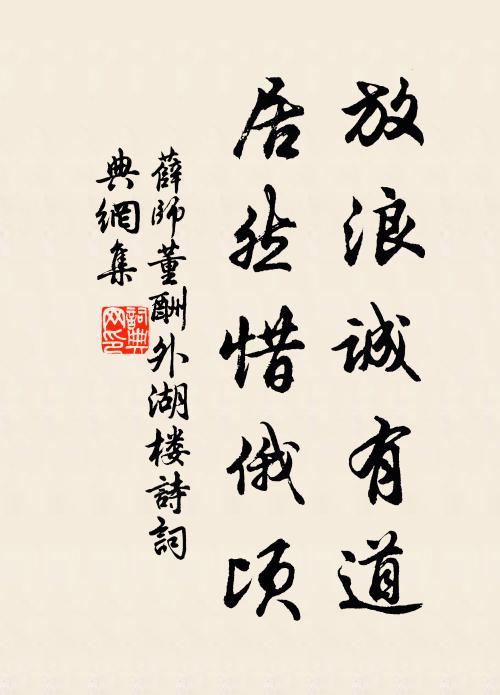 放浪誠有道
居然惜俄頃
薛師董酬外湖楼詩詞
典網集
詞典
网印